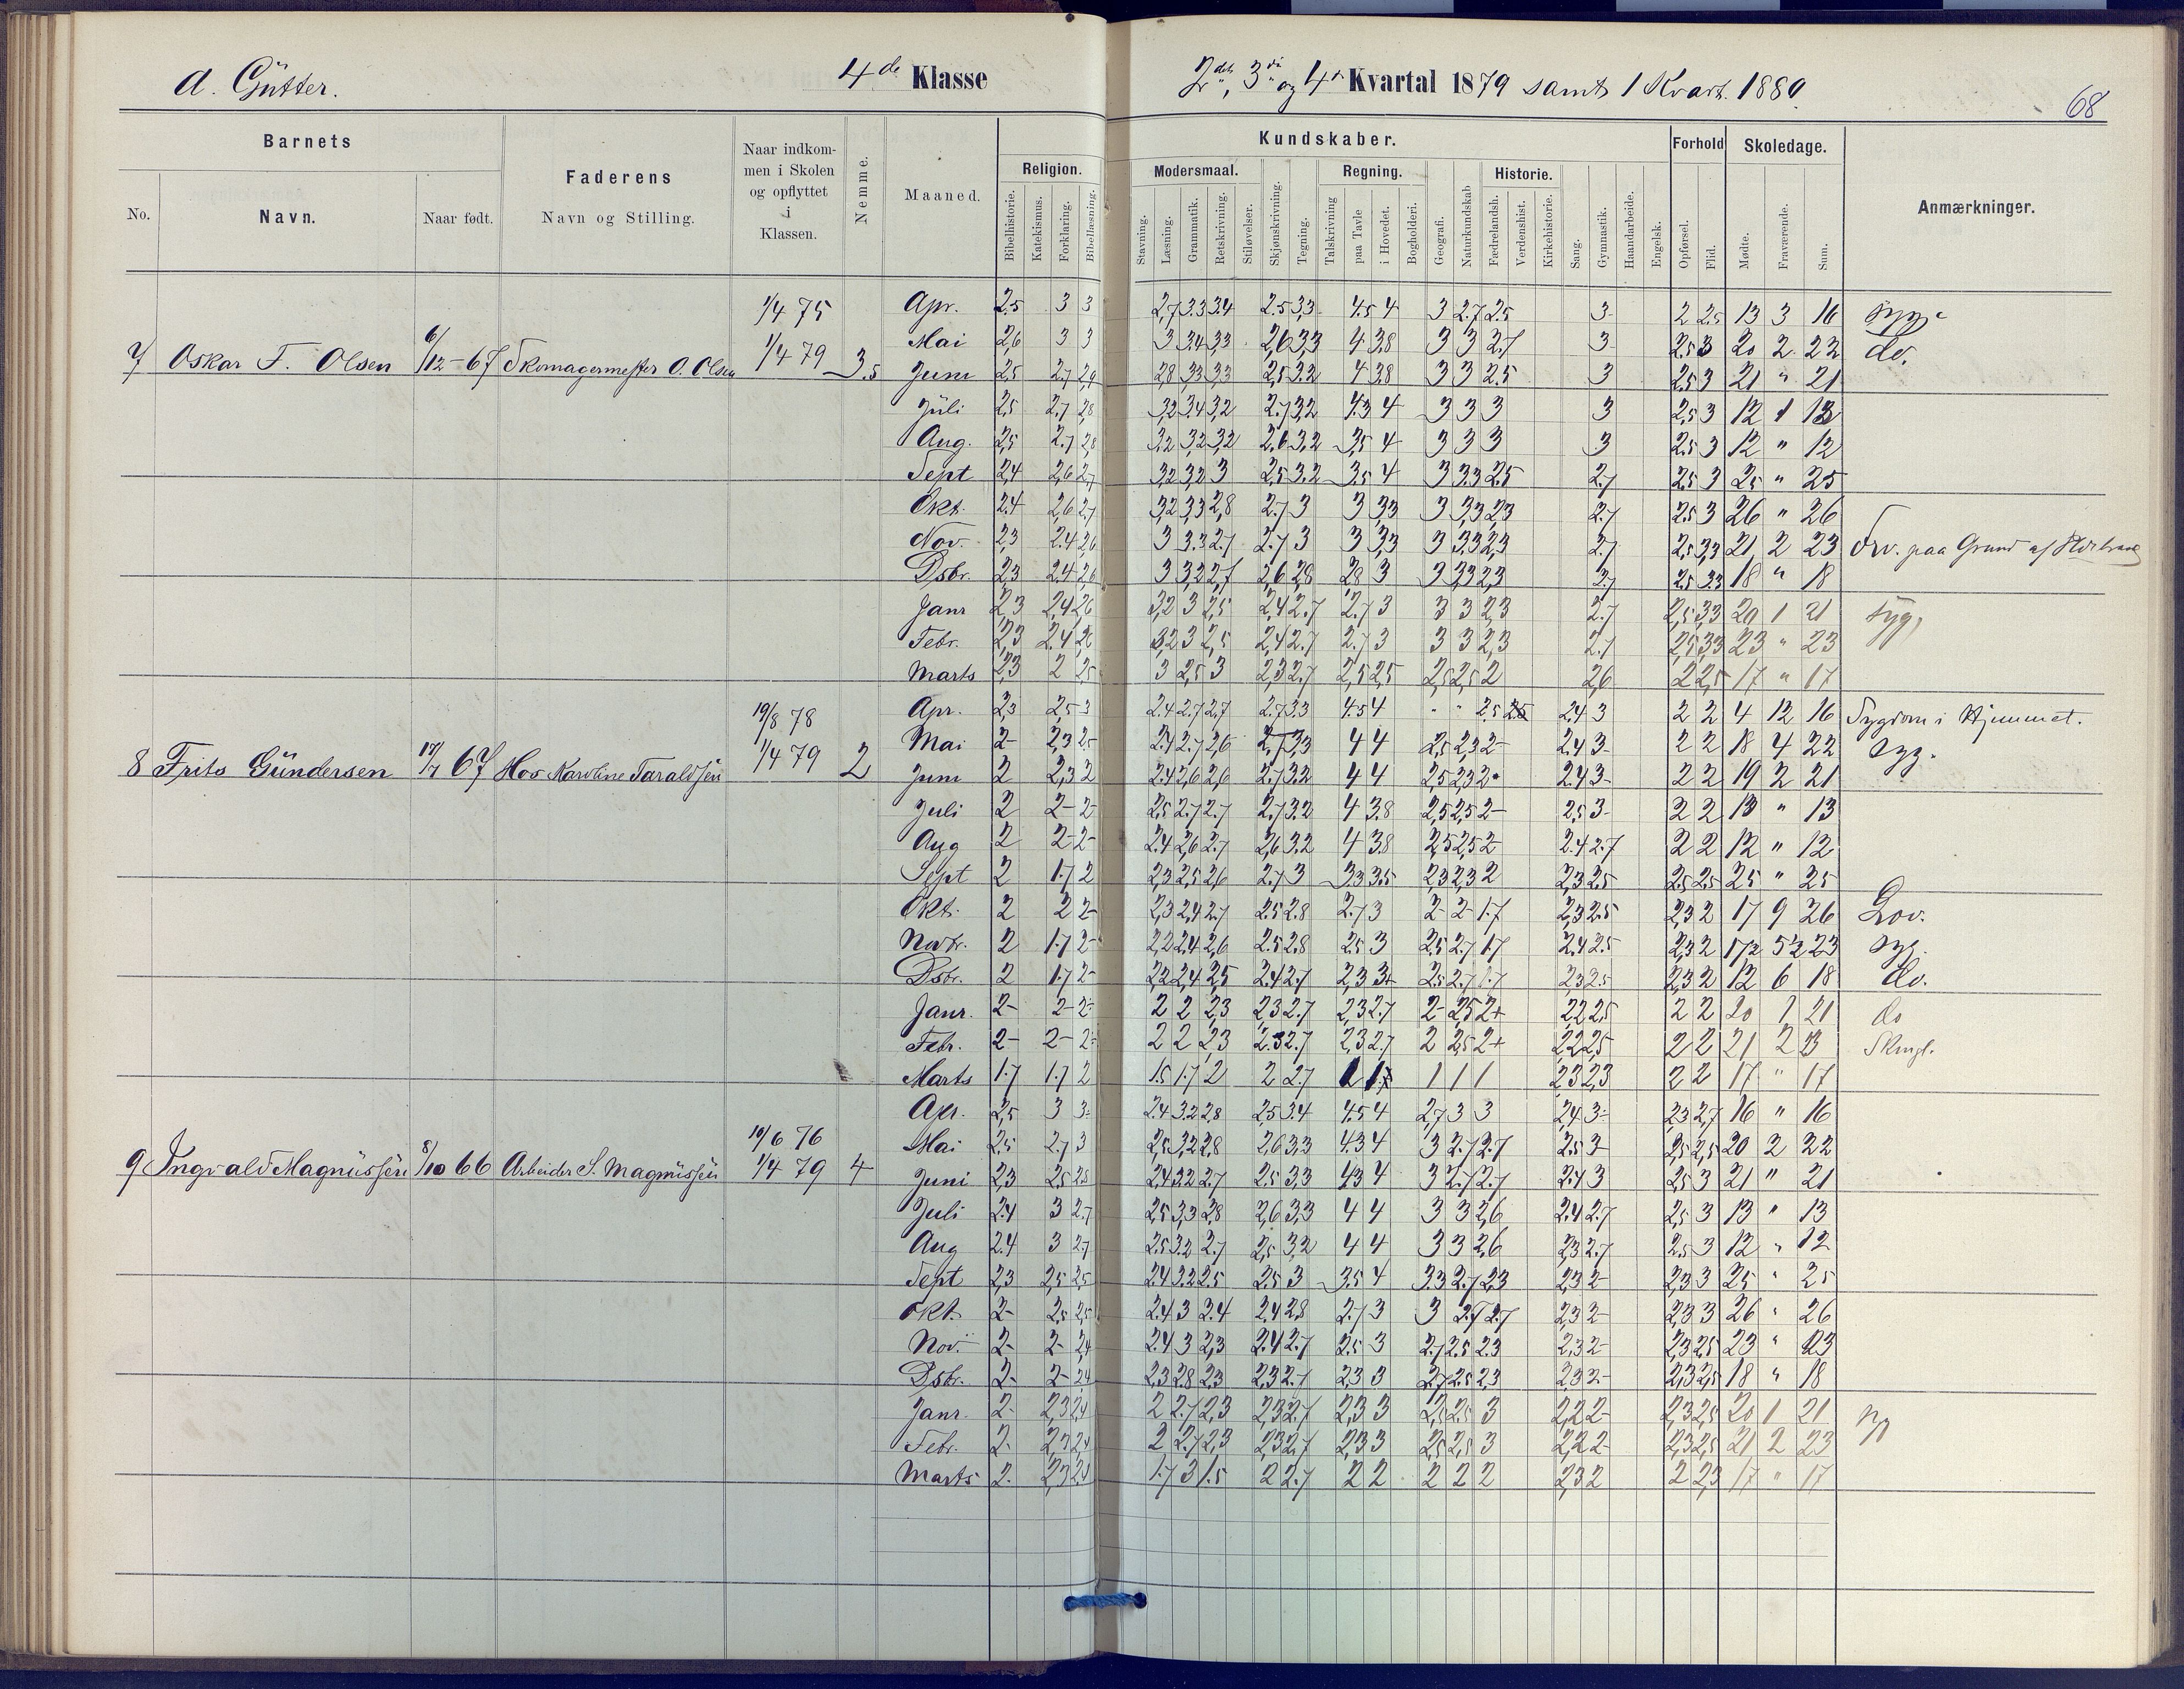 a. Gutter. 4de Klasse 2det, 3die og 4de Kvartal 1879 samt 1 Kvart. 1880. 68
Barnets Faderens Naar indkommen i Skolen og opflyttet i Klassen. Nemme. Maaned. Kundskaber. Forhold Skoledage. Anmærkninger.
No. Navn. Naar født. Navn og Stilling. Religion. Modersmaal. Regning. Historie.
Bibelhistorie. Katekismus. Forklaring. Bibellæsning. Stavning. Læsning. Grammatik. Retskrivning. Stiløvelser. Skjønskrivning. Tegning. Talskrivning paa Tavle i Hovedet. Bogholderi. Geografi. Naturkundskab Fædrelandsh. Verdenshist. Kirkehistorie. Sang. Gymnastik. Haandarbeide. Engelsk. Opførsel. Flid. Mødte. Fraværende. Sum.
1/4 75 Apr. 2.5 3 3 2,7 3.3 3.4 2.5 3,3 4.5 4 3 2.7 2.5 3 2 2.5 13 3 16 syg
7 Oskar F. Olsen 6/12-67 Skomagermester O. Olsen 1/4 79 3.5
Mai 2,6 3 3 3 3.4 3,3 2,6 3,3 4 3.8 3 3 2.7 3 2.5 3 20 2 22 do.
Juni 2.5 2.7 2,9 2,8 3,3 3,3 2,5 3.2 4 3.8 3 3 2.5 3 2.5 3 21 " 21
Juli 2,5 2.7 2,8 3,2 3.4 3,2 2.7 3,2 4.3 4 3 3 3 3 2.5 3 12 1 13
Aug. 2,5 2.7 2,8 3.2 3,2 3,2 2.6 3.2 3,5 4 3 3 3 3 2.5 3 12 " 12
Sept 2,4 2,6 2,7 3,2 3,2 3 2.5 3.2 3.5 4 3 3.3 2.5 2.7 2.5 3 25 " 25
Okt. 2.4 2,6 2,7 3,2 3,3 2,8 2.7 3 3 3,3 3 3,3 2,3 2.7 2.5 3 26 " 26
Nov. 2,3 2.4 2,6 3 3.3 2.7 2.7 3 3 3,3 3 3.3 2,3 2.7 2,5 3,3 21 2 23 Frv. paa Grund af
Dsbr. 2,3 2.4 2,6 3 3,2 2,7 2,6 2,8 2,8 3 3 3,3 2,3 2.7 2.5 3.3 18 " 18
Janr 2,3 2,4 2,6 3,2 3 2,5 2,4 2.7 2.7 3 3 3 2,3 2.7 2,5 3,3 20 1 21 syg,
Febr. 2,3 2.4 2,6 3,2 3 2,5 2,4 2.7 2.7 3 3 3 2,3 2.7 2,5 3,3 23 " 23
Marts 2,3 2 2,5 3 2,5 3 2,3 2.7 2,5 2,5 2,5 2,5 2 2,6 2 2,5 17 " 17
19/8 78 Apr. 2,3 2,5 3 2.4 2.7 2,7 2.7 3.3 4.5 4 " " 2.5 2.4 3 2 2 4 12 16 Sygdom i Hjemmet.
8 Frits Gundersen 17/7 67 Hos Karoline Taraldsen 1/4 79 2
Mai 2- 2,3 2.5 2.4 2.7 2,6 2,7 3,3 4 4 2,5 2,3 2- 2.4 3- 2 2 18 4 22 syg.
Juni 2 2,3 2 2.4 2,6 2,6 2.7 3.2 4 4 2,5 2,3 2- 2.4 3- 2 2 19 2 21
Juli 2 2- 2- 2,5 2.7 2.7 2.7 3.2 4 3.8 2,5 2,5 2- 2,5 3- 2 2 13 " 13
Aug 2 2- 2- 2.4 2,6 2.7 2,6 3.2 4 3.8 2,5 2,5 2- 2.4 2.7 2 2 12 " 12
Sept 2 1.7 2 2,3 2,5 2,6 2.7 3 3.3 3.5 2,3 2,3 2 2,3 2.5 2.5 2.5 25 " 25
Okt. 2 2 2- 2,3 2,4 2.7 2.5 2.8 2.7 3 2- 2- 1.7 2,3 2.5 2,3 2 17 9 26 Lov.
Novbr. 2 1.7 2- 2,2 2.4 2,6 2.5 2.8 2.5 3 2.5 2.7 1.7 2.4 2.5 2,3 2 17½ 5½ 23 syg.
Dsbr. 2 1.7 2- 2,2 2,4 2,5 2.4 2.7 2,3 3+ 2.5 2.7 1.7 2,3 2.5 2,3 2 12 6 18 do.
Janr. 2- 2- 2- 2 2 2,3 2,3 2.7 2,3 2.7 2- 2,5 2+ 2,2 2,5 2 2 20 1 21 do
Febr. 2- 2- 2- 2 2 2,3 2.3 2.7 2,3 2.7 2 2,5 2+ 2,2 2,5 2 2 21 2 23
Marts 1.7 1.7 2 1.5 1.7 2 2 2.7 1 1 1 2,3 2,3 2 2 17 " 17
Apr. 2,5 3 3- 2.4 3.2 2.8 2,5 3.4 4.5 4 2,7 3 3 2,4 3- 2,3 2,7 16 " 16
10/6 76 Mai 2,5 2.7 3 2,5 3,2 2,8 2,6 3,3 4.3 4 3 2.7 2.7 2.5 3 2,5 2,5 20 2 22
9 Ingvald Magnussen 8/10 66 Arbeider S. Magnussen 1/4 79 4
Juni 2,3 2,5 2,8 2.4 3.2 2.7 2.5 3,3 4.3 4 3 2.7 2.7 2.4 3 2.5 3 21 " 21
Juli 2.4 3 2.7 2,5 3,3 2,8 2,6 3,3 4 4 3 3 2,6 2.4 2.7 2,5 3 13 " 13
Aug 2.4 3 2.7 2.5 3.2 2.7 2,5 3,2 4 4 3 3 2,6 2,3 2.7 2.5 3 12 " 12
Sept 2,3 2,5 2,5 2.4 3.2 2.5 2.5 3 3.5 4 3.3 2.7 2,3 2,3 2- 2,3 3 25 " 25
Okt. 2- 2,5 2,5 2.4 3 2.4 2,4 2,8 2.7 3 3 2.7 2.7 2,3 2- 2,3 3 26 " 26
Nov. 2- 2- 2,4 2.4 3 2,3 2.4 2.7 2.5 3 2.7 2.5 2.3 2,3 2- 2,3 2.5 23 " 23
Dsbr. 2- 2- 2,4 2,3 2.8 2,3 2,3 2.7 2,3 3 2.7 2.5 2,3 2,3 2- 2,3 2,5 18 " 18
Janr. 2- 2,3 2,4 2 2.7 2,3 2,3 2.7 2,3 3 2,5 2,5 3 2,2 2- 2,3 2,5 20 1 21 syg
Febr. 2- 2,3 2,4 2 2.7 2,3 2,3 2,7 2,3 3 2,5 2,5 3 2,2 2- 2,3 2,5 21 2 23
Marts 2- 2,3 2,4 1.7 3 1.5 2 2.7 2 2 2 2 2 2,3 2 2 2,3 17 " 17